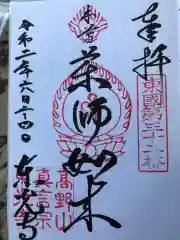 奉拝
東國第三十六番
本尊
薬師如来
高野山
真言宗
令和二年六月二十四日